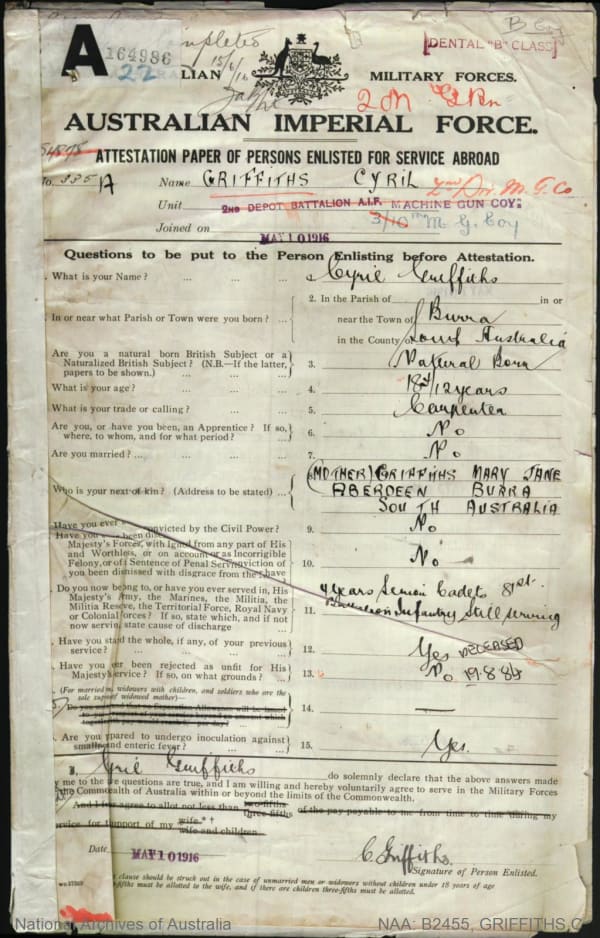 B Coy
DENTAL "B" CLASS
A 164986
22
15/6/16
LIAN MILITARY FORCES.
AUSTRALIAN IMPERIAL FORCE.
ATTESTATION PAPER OF PERSONS ENLISTED FOR SERVICE ABROAD
No. 335 A Name GRIFFITHS CYRIL 2nd Div. M. G. Co
Unit 2ND DEPOT BATTALION A.I.F. MACHINE GUN COY:
3/10th M G. Coy
Joined on MAY 10 1916
Questions to be put to the Person Enlisting before Attestation.
What is your Name? ... Cyril Griffiths
2. In the Parish of in or
In or near what Parish or Town were you born? ... near the Town of Burra
in the County of South Australia
Are you a natural born British Subject or a
Naturalized British Subject? (N.B.—If the latter, 3. Natural Born
papers to be shown.) ...
What is your age? ... 4. 18 4/12 years
What is your trade or calling? ... 5. Carpenter
Are you, or have you been, an Apprentice? If so,
where, to whom, and for what period? ... 6. No
Are you married? ... 7. No
(MOTHER) GRIFFITHS MARY JANE
Who is your next of kin? (Address to be stated) ... ABERDEEN BURRA
SOUTH AUSTRALIA
Have you ever convicted by the Civil Power? 9. No
Have you been disc
Majesty's Forces, with Ign from any part of His
and Worthless, or on account as Incorrigible
Felony, or of a Sentence of Penal Serv viction of 10. No
you been dismissed with disgrace from the have
Do you now belong to, or have you ever served in, His 4 years Senior Cadets 81st.
Majesty's Army, the Marines, the Militia, the
Militia Reserve, the Territorial Force, Royal Navy 11. Battalion Infantry Still serving
or Colonial Forces? If so, state which, and if not
now serving, state cause of discharge
Have you stated the whole, if any, of your previous
service? ... 12. Yes DECEASED
Have you ever been rejected as unfit for His
Majesty's service? If so, on what grounds? ... 13. No 19.8.84
(For married men, widowers with children, and soldiers who are the
sole support of widowed mother)—
14. —
Are you prepared to undergo inoculation against
small-pox and enteric fever? ... 15. Yes.
I, Cyril Griffiths do solemnly declare that the above answers made
by me to the above questions are true, and I am willing and hereby voluntarily agree to serve in the Military Forces
of the Commonwealth of Australia within or beyond the limits of the Commonwealth.
And I further agree to allot not less than two-fifths three-fifths of the pay payable to me from time to time during my
service for support of my wife.*† wife and children
Date MAY 10 1916 C Griffiths.
Signature of Person Enlisted.
clause should be struck out in the case of unmarried men or widowers without children under 18 years of age
-fifths must be allotted to the wife, and if there are children three-fifths must be allotted.
National Archives of Australia NAA: B2455, GRIFFITHS C